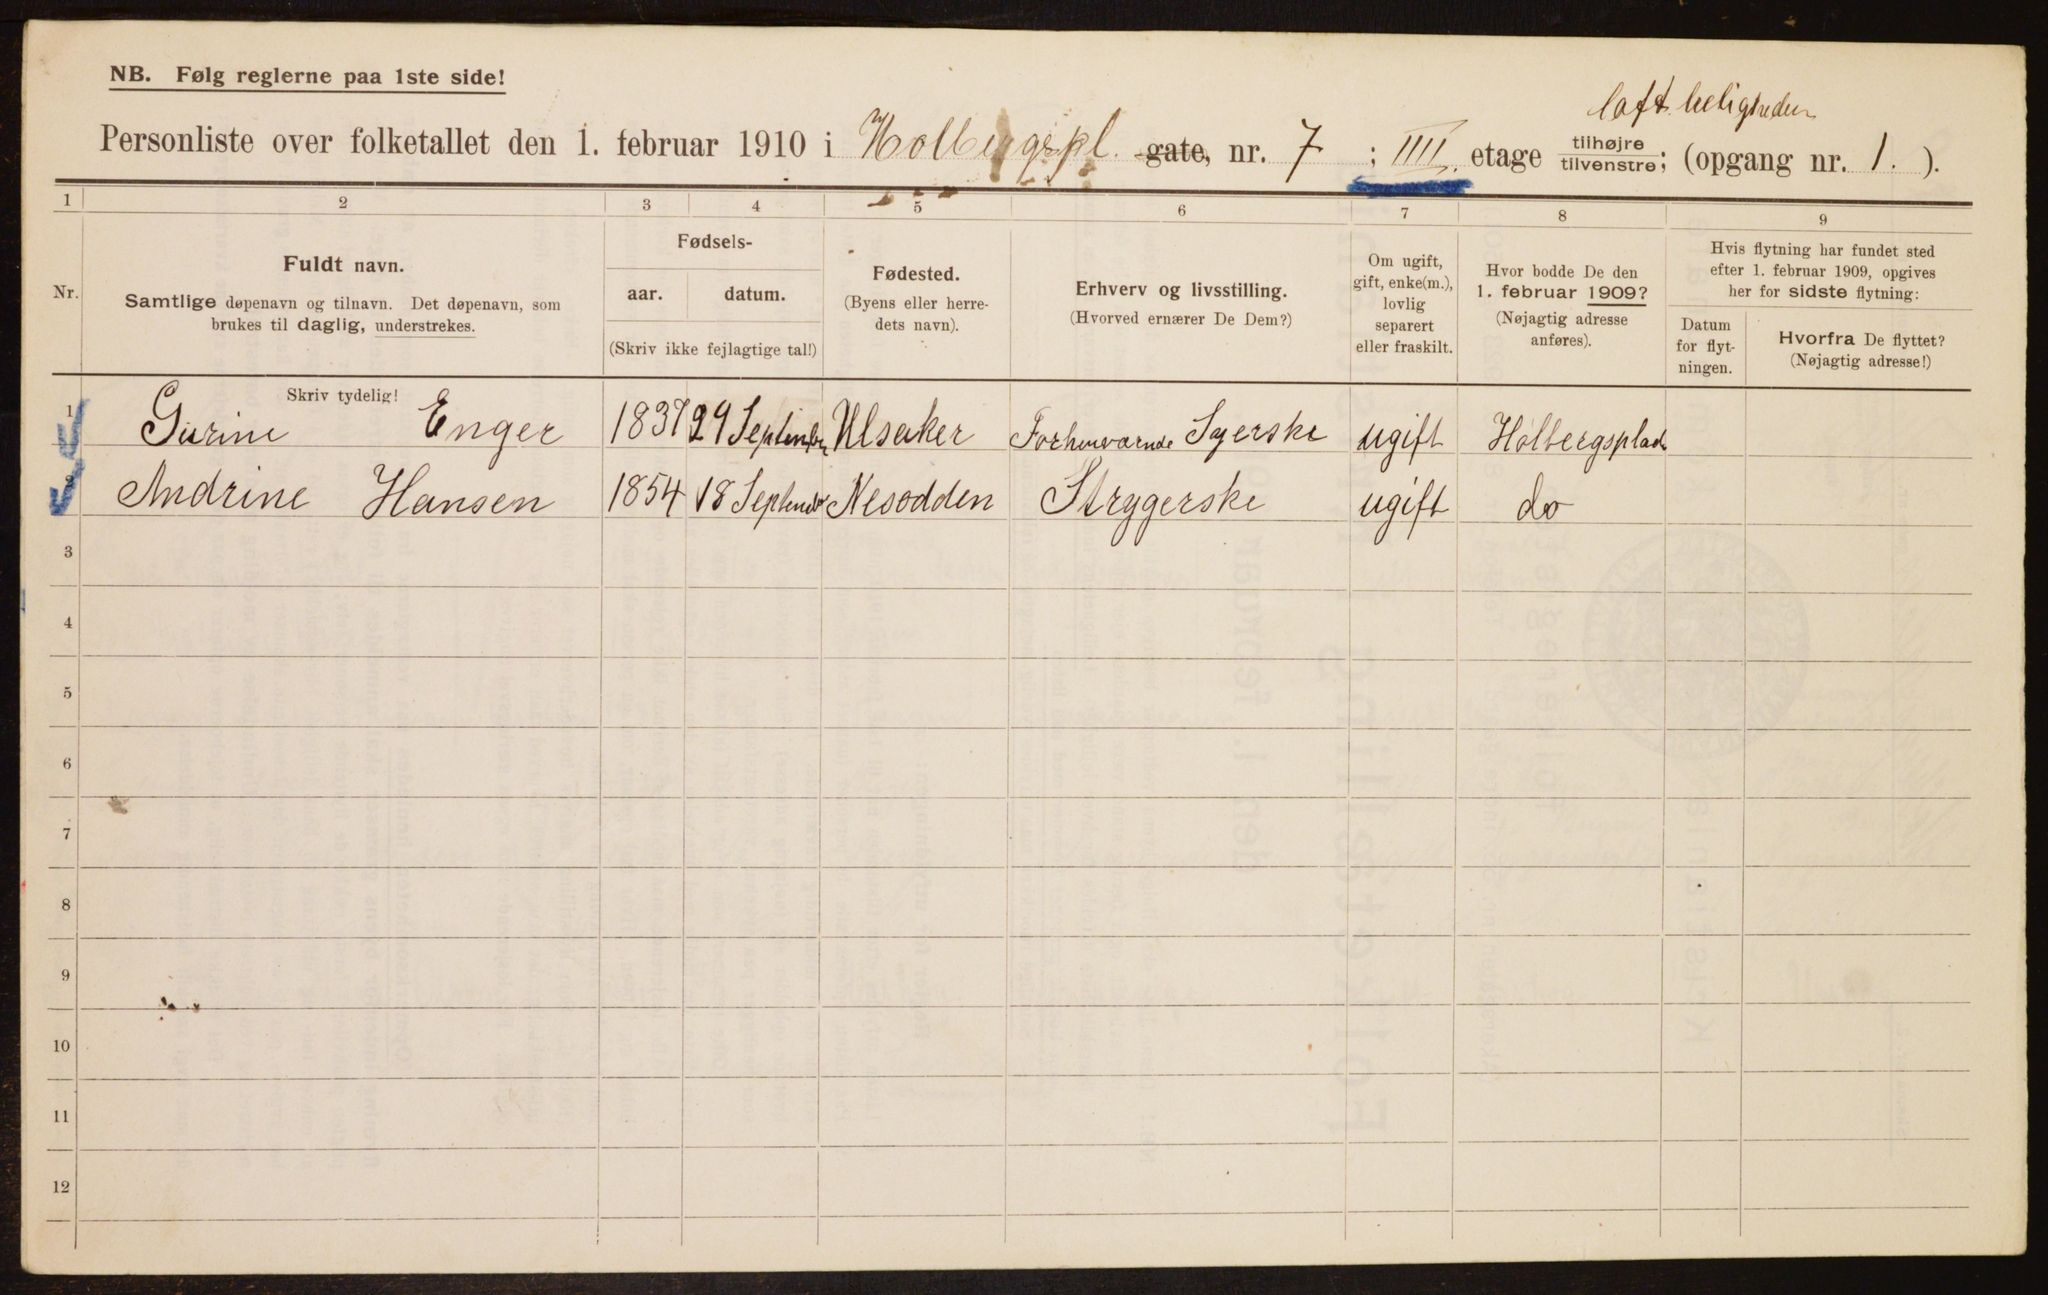 NB. Følg reglerne paa 1ste side!
loft
Personliste over folketallet den 1. februar 1910 i Holbergspl. gate, nr. 7 ; IIII. etage tilhøjre tilvenstre; (opgang nr. 1. ).
1 2 3 4 5 6 7 8 9
Nr.
Fuldt navn.
Samtlige døpenavn og tilnavn. Det døpenavn, som
brukes til daglig, understrekes.
Skriv tydelig!
Fødsels-
aar. datum.
(Skriv ikke fejlagtige tal!)
Fødested.
(Byens eller herre-
dets navn).
Erhverv og livsstilling.
(Hvorved ernærer De Dem?)
Om ugift,
gift, enke(m.),
lovlig
separert
eller fraskilt.
Hvor bodde De den
1. februar 1909?
(Nøjagtig adresse
anføres).
Hvis flytning har fundet sted
efter 1. februar 1909, opgives
her for sidste flytning:
Datum
for flyt-
ningen.
Hvorfra De flyttet?
(Nøjagtig adresse!)
1 Gurine Enger 1837 29 September Ulsaker Forhenværnde Syerske ugift Holbergsplads
2 Andrine Hansen 1854 18 Septembr Nesodden Strygerske ugift do
3
4
5
6
7
8
9
10
11
12